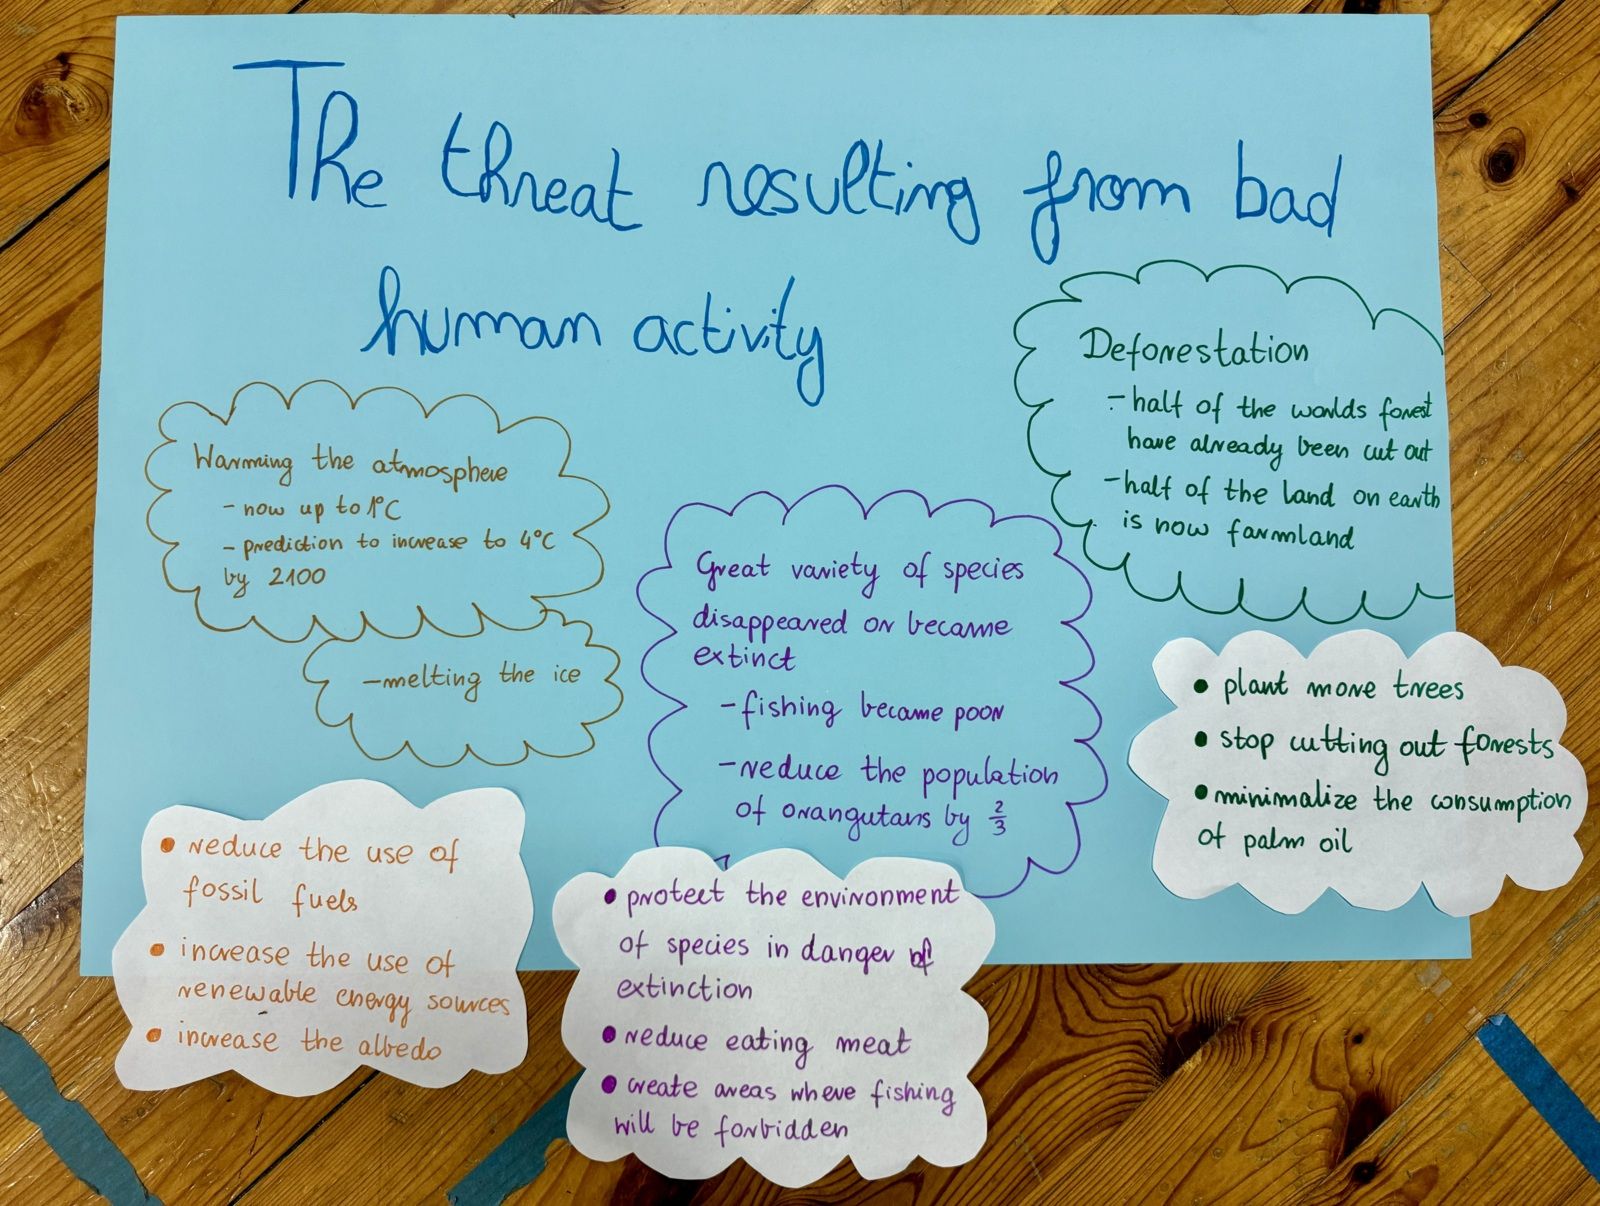 The threat resulting from bad
human activity
Warming the atmosphere
- now up to 1°C
- prediction to increase to 4°C
by 2100
- melting the ice
Great variety of species
disappeared or became
extinct
- fishing became poor
- reduce the population
of orangutans by 2/3
Deforestation
- half of the worlds forest
have already been cut out
- half of the land on earth
is now farmland
• reduce the use of
fossil fuels
• increase the use of
renewable energy sources
• increase the albedo
• protect the environment
of species in danger of
extinction
• reduce eating meat
• create areas where fishing
will be forbidden
• plant more trees
• stop cutting out forests
• minimalize the consumption
of palm oil